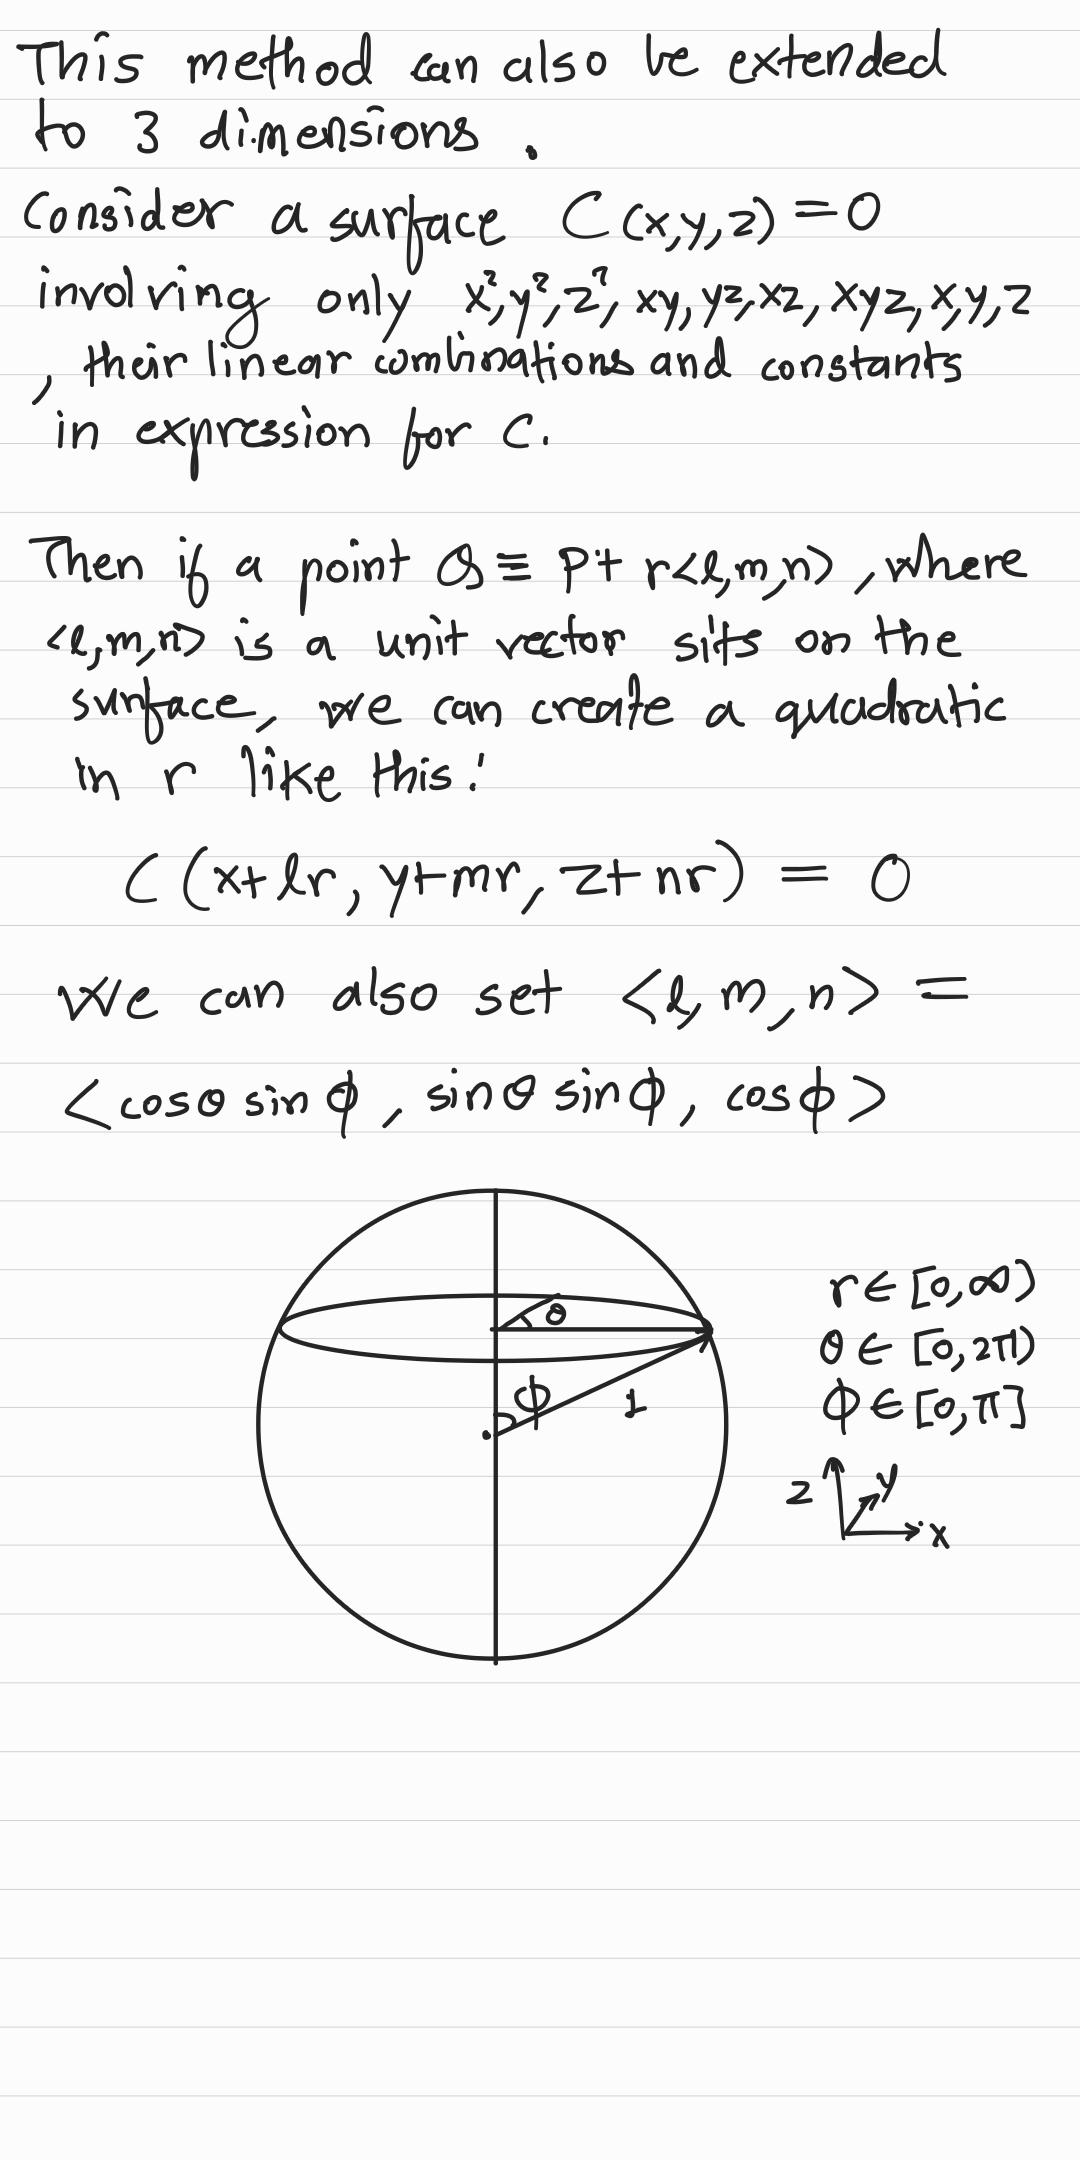 This method can also be extended
to 3 dimensions.
Consider a surface C(x,y,z)=0
involving only x²,y²,z², xy,yz,xz, xyz, x,y,z
, their linear combinations and constants
in expression for C.
Then if a point Q≡ P+ r<l,m,n>, where
<l,m,n> is a unit vector sits on the
surface, we can create a quadratic
in r like this:
C(x+lr, y+mr, z+nr) = 0
We can also set <l, m, n> =
<cosθ sinϕ, sinθ sinϕ, cosϕ>
θ
ϕ
1
r∈[0,∞)
θ∈[0,2π)
ϕ∈[0,π]
z
y
x